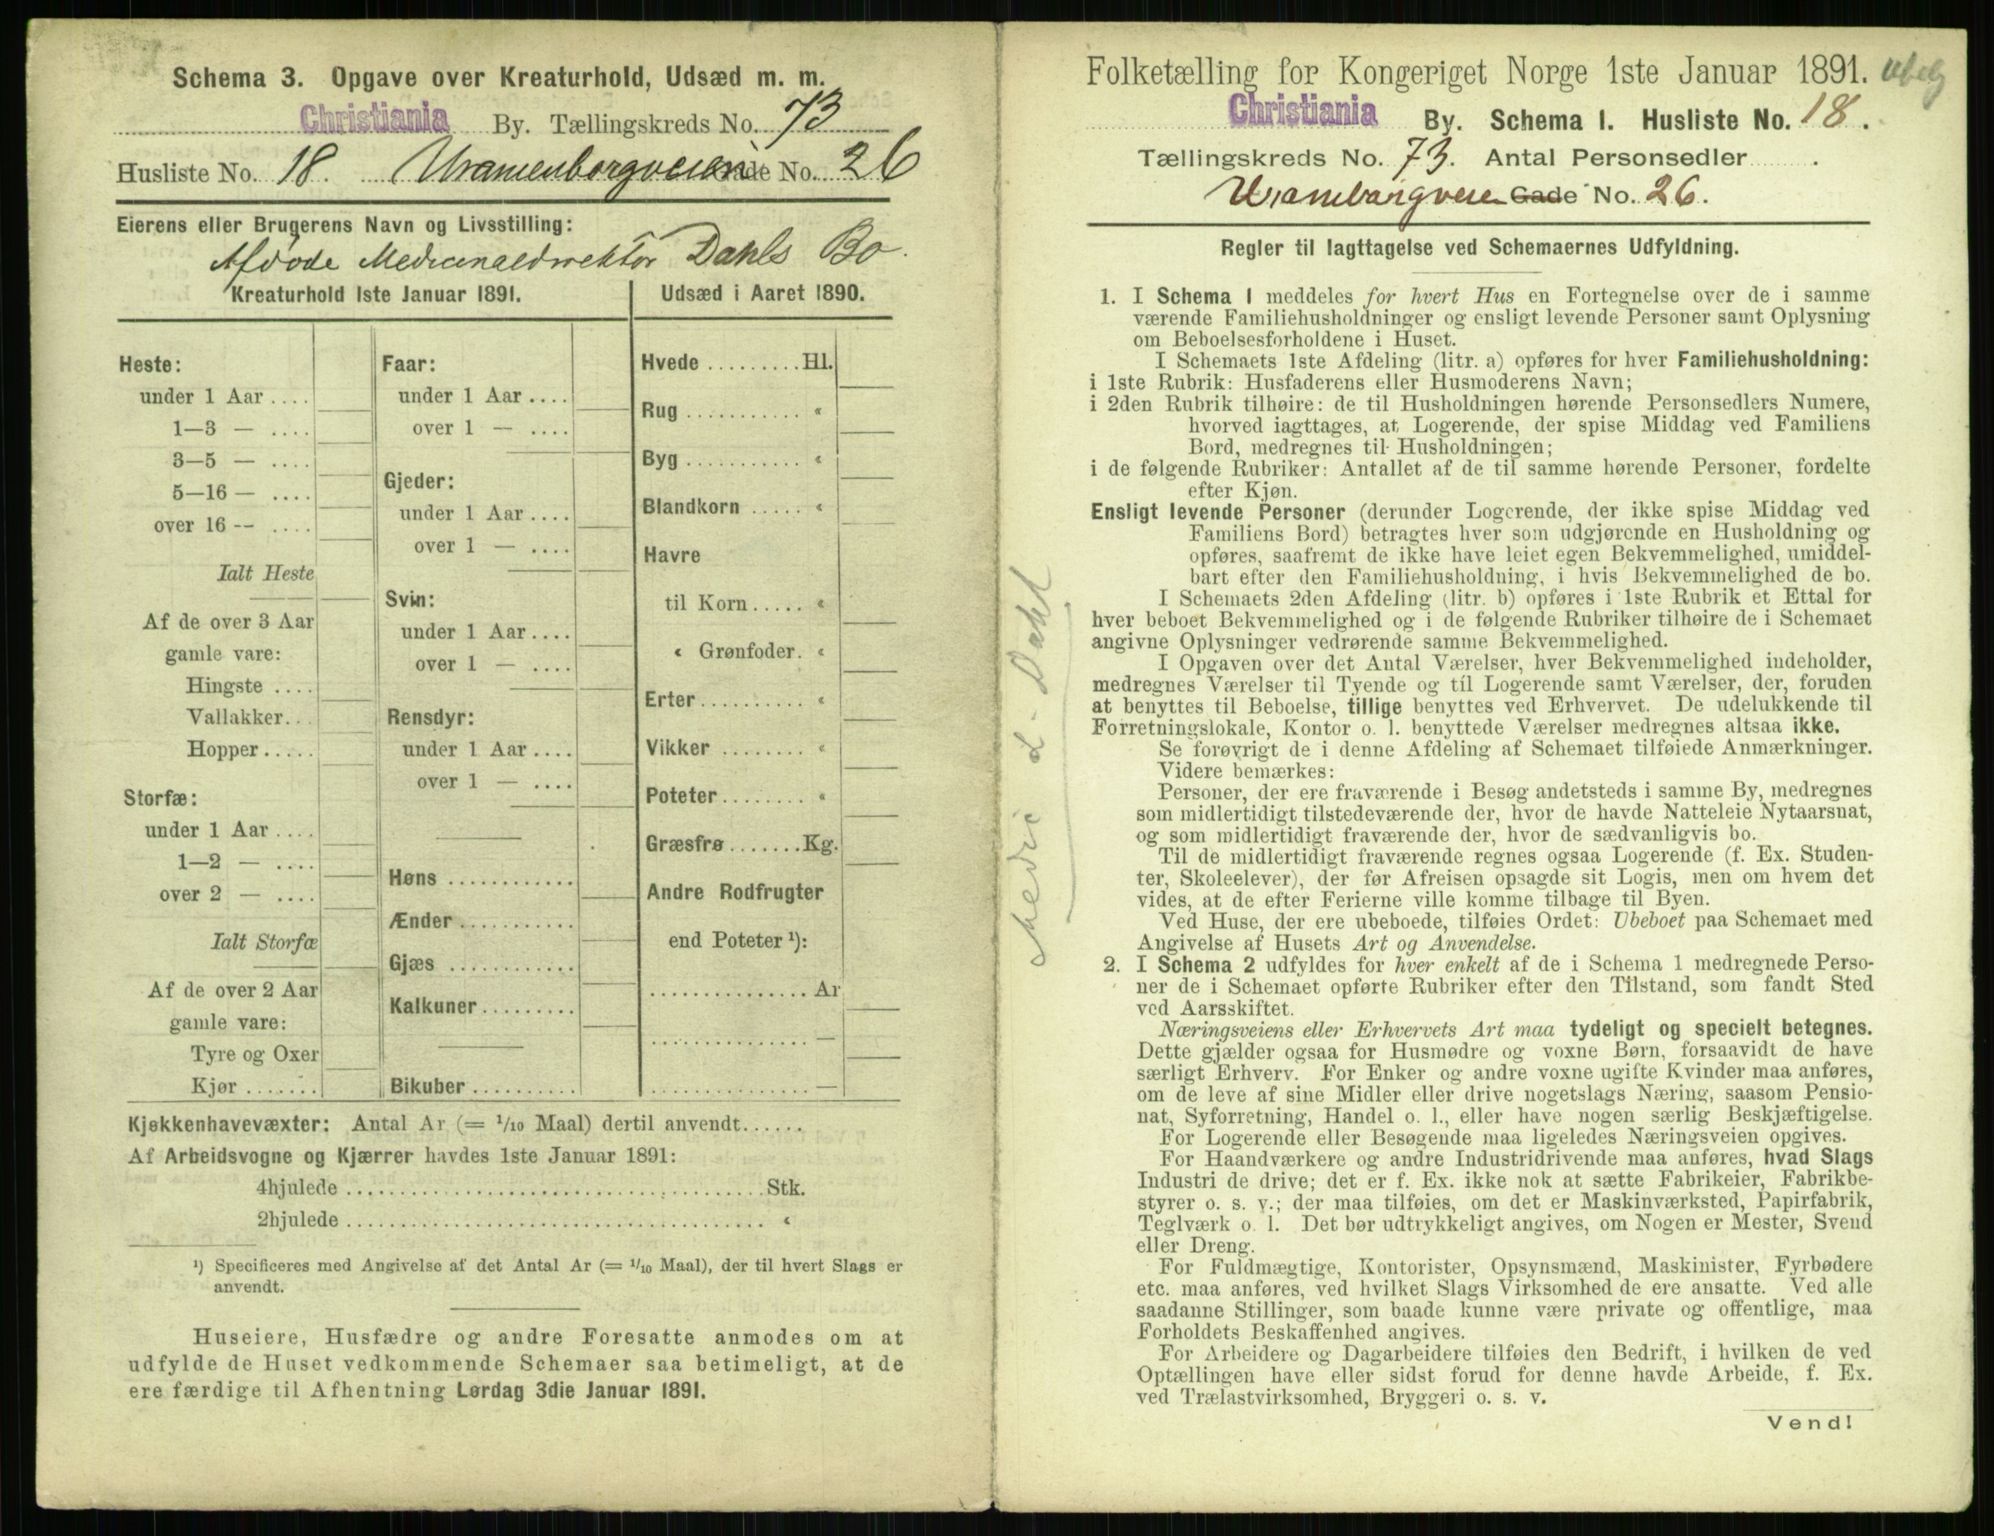 Schema 3. Opgave over Kreaturhold, Udsæd m. m.
Christiania By. Tællingskreds No. 73
Husliste No. 18. Uranienborgveien Gade No. 26
Eierens eller Brugerens Navn og Livsstilling:
Afdøde Medicinaldirektør Dahls Bo.
Kreaturhold 1ste Januar 1891.
Udsæd i Aaret 1890.
Heste:
under 1 Aar ....
1—3 — ....
3—5 — ....
5—16 — ....
over 16 -- ....
Ialt Heste
Af de over 3 Aar
gamle vare:
Hingste ....
Vallakker...
Hopper.....
Storfæ:
under 1 Aar ....
1—2 — ....
over 2 — ....
Ialt Storfæ
Af de over 2 Aar
gamle vare:
Tyre og Oxer
Kjør.......
Faar:
under 1 Aar ....
over 1 — ....
Gjeder:
under 1 Aar ....
over 1 — ....
Svin:
under 1 Aar ....
over 1 — ....
Rensdyr:
under 1 Aar ....
over 1 — ....
Høns ............
Ænder ...........
Gjæs ............
Kalkuner.........
Bikuber ..........
Hvede .........Hl.
Rug ........... «
Byg ........... «
Blandkorn ..... «
Havre
til Korn..... «
« Grønfoder. «
Erter.......... «
Vikker ........ «
Poteter........ «
Græsfrø .......Kg.
Andre Rodfrugter
end Poteter ¹):
............... Ar
............... —
............... —
Kjøkkenhavevæxter: Antal Ar (= 1/10 Maal) dertil anvendt......
Af Arbeidsvogne og Kjærrer havdes 1ste Januar 1891:
4hjulede ......................................Stk.
2hjulede ...................................... «
¹) Specificeres med Angivelse af det Antal Ar (= 1/10 Maal), der til hvert Slags er
anvendt.
Huseiere, Husfædre og andre Foresatte anmodes om at
udfylde de Huset vedkommende Schemaer saa betimeligt, at de
ere færdige til Afhentning Lørdag 3die Januar 1891.
Medic d. Dahl
Folketælling for Kongeriget Norge 1ste Januar 1891.
Christiania By. Schema 1. Husliste No. 18.
Tællingskreds No. 73. Antal Personsedler .
Uranieborgveien Gade No. 26.
Regler til Iagttagelse ved Schemaernes Udfyldning.
1. I Schema 1 meddeles for hvert Hus en Fortegnelse over de i samme
værende Familiehusholdninger og ensligt levende Personer samt Oplysning
om Beboelsesforholdene i Huset.
I Schemaets 1ste Afdeling (litr. a) opføres for hver Familiehusholdning:
i 1ste Rubrik: Husfaderens eller Husmoderens Navn;
i 2den Rubrik tilhøire: de til Husholdningen hørende Personsedlers Numere,
hvorved iagttages, at Logerende, der spise Middag ved Familiens
Bord, medregnes til Husholdningen;
i de følgende Rubriker: Antallet af de til samme hørende Personer, fordelte
efter Kjøn.
Ensligt levende Personer (derunder Logerende, der ikke spise Middag ved
Familiens Bord) betragtes hver som udgjørende en Husholdning og
opføres, saafremt de ikke have leiet egen Bekvemmelighed, umiddel-
bart efter den Familiehusholdning, i hvis Bekvemmelighed de bo.
I Schemaets 2den Afdeling (litr. b) opføres i 1ste Rubrik et Ettal for
hver beboet Bekvemmelighed og i de følgende Rubriker tilhøire de i Schemaet
angivne Oplysninger vedrørende samme Bekvemmelighed.
I Opgaven over det Antal Værelser, hver Bekvemmelighed indeholder,
medregnes Værelser til Tyende og til Logerende samt Værelser, der, foruden
at benyttes til Beboelse, tillige benyttes ved Erhvervet. De udelukkende til
Forretningslokale, Kontor o. l. benyttede Værelser medregnes altsaa ikke.
Se forøvrigt de i denne Afdeling af Schemaet tilføiede Anmærkninger.
Videre bemærkes:
Personer, der ere fraværende i Besøg andetsteds i samme By, medregnes
som midlertidigt tilstedeværende der, hvor de havde Natteleie Nytaarsnat,
og som midlertidigt fraværende der, hvor de sædvanligvis bo.
Til de midlertidigt fraværende regnes ogsaa Logerende (f. Ex. Studen-
ter, Skoleelever), der før Afreisen opsagde sit Logis, men om hvem det
vides, at de efter Ferierne ville komme tilbage til Byen.
Ved Huse, der ere ubeboede, tilføies Ordet: Ubeboet paa Schemaet med
Angivelse af Husets Art og Anvendelse.
2. I Schema 2 udfyldes for hver enkelt af de i Schema 1 medregnede Perso-
ner de i Schemaet opførte Rubriker efter den Tilstand, som fandt Sted
ved Aarsskiftet.
Næringsveiens eller Erhvervets Art maa tydeligt og specielt betegnes.
Dette gjælder ogsaa for Husmødre og voxne Børn, forsaavidt de have
særligt Erhverv. For Enker og andre voxne ugifte Kvinder maa anføres,
om de leve af sine Midler eller drive nogetslags Næring, saasom Pensio-
nat, Syforretning, Handel o. l., eller have nogen særlig Beskjæftigelse.
For Logerende eller Besøgende maa ligeledes Næringsveien opgives.
For Haandværkere og andre Industridrivende maa anføres, hvad Slags
Industri de drive; det er f. Ex. ikke nok at sætte Fabrikeier, Fabrikbe-
styrer o. s. v.; der maa tilføies, om det er Maskinværksted, Papirfabrik,
Teglværk o. l. Det bør udtrykkeligt angives, om Nogen er Mester, Svend
eller Dreng.
For Fuldmægtige, Kontorister, Opsynsmænd, Maskinister, Fyrbødere
etc. maa anføres, ved hvilket Slags Virksomhed de ere ansatte. Ved alle
saadanne Stillinger, som baade kunne være private og offentlige, maa
Forholdets Beskaffenhed angives.
For Arbeidere og Dagarbeidere tilføies den Bedrift, i hvilken de ved
Optællingen have eller sidst forud for denne havde Arbeide, f. Ex.
ved Trælastvirksomhed, Bryggeri o. s. v.
Vend!